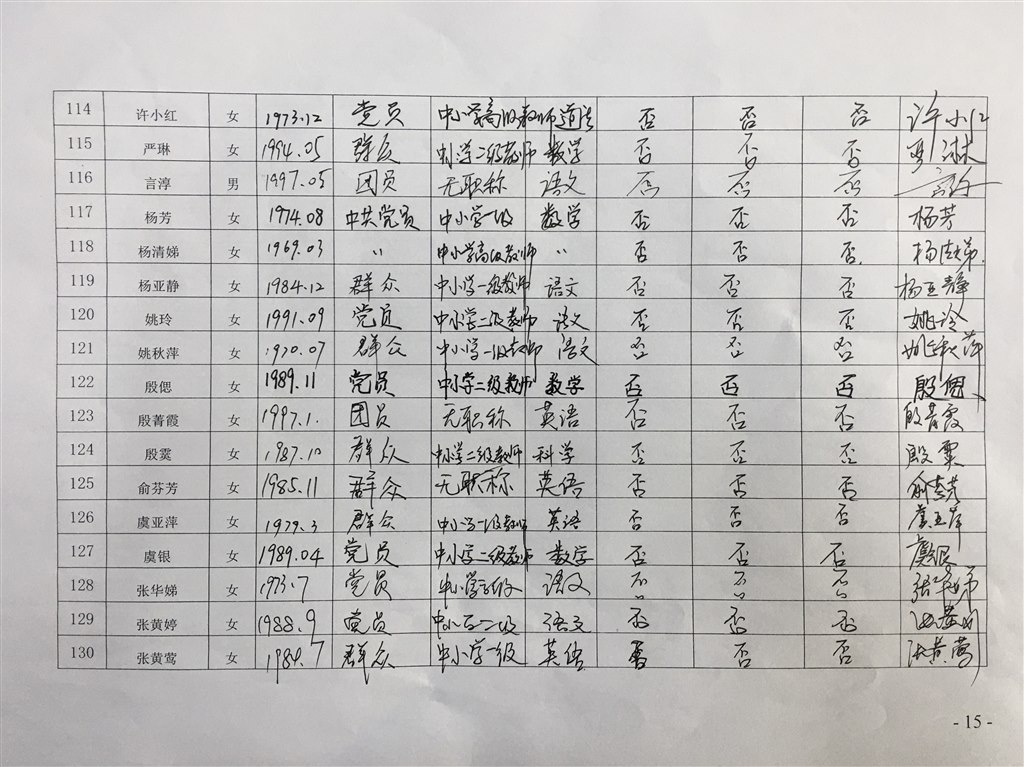 114 许小红 女 1973.12 党员 中小学高级教师 道法 否 否 否 许小红
115 严琳 女 1994.05 群众 中小学二级教师 数学 否 否 否 严琳
116 言淳 男 1997.05 团员 无职称 语文 否 否 否
117 杨芳 女 1974.08 中共党员 中小学一级 数学 否 否 否 杨芳
118 杨清娣 女 1969.03 〃 中小学高级教师 〃 否 否 否 杨清娣
119 杨亚静 女 1984.12 群众 中小学一级教师 语文 否 否 否 杨亚静
120 姚玲 女 1991.09 党员 中小学二级教师 语文 否 否 否 姚玲
121 姚秋萍 女 1970.07 群众 中小学一级教师 语文 否 否 否 姚秋萍
122 殷偲 女 1989.11 党员 中小学二级教师 数学 否 否 否 殷偲
123 殷菁霞 女 1997.1. 团员 无职称 英语 否 否 否 殷菁霞
124 殷霙 女 1987.10 群众 中小学二级教师 科学 否 否 否
125 俞芬芳 女 1985.11 群众 无职称 英语 否 否 否 俞芬芳
126 虞亚萍 女 1979.3 群众 中小学一级教师 英语 否 否 否 虞亚萍
127 虞银 女 1989.04 党员 中小学二级教师 数学 否 否 否 虞银
128 张华娣 女 1973.7 党员 语文 否 否 否 张华娣
129 张黄婷 女 1988.9 党员 中小学二级 语文 否 否 否
130 张黄莺 女 1984.7 群众 中小学一级 英语 否 否 否 张黄莺
- 15 -